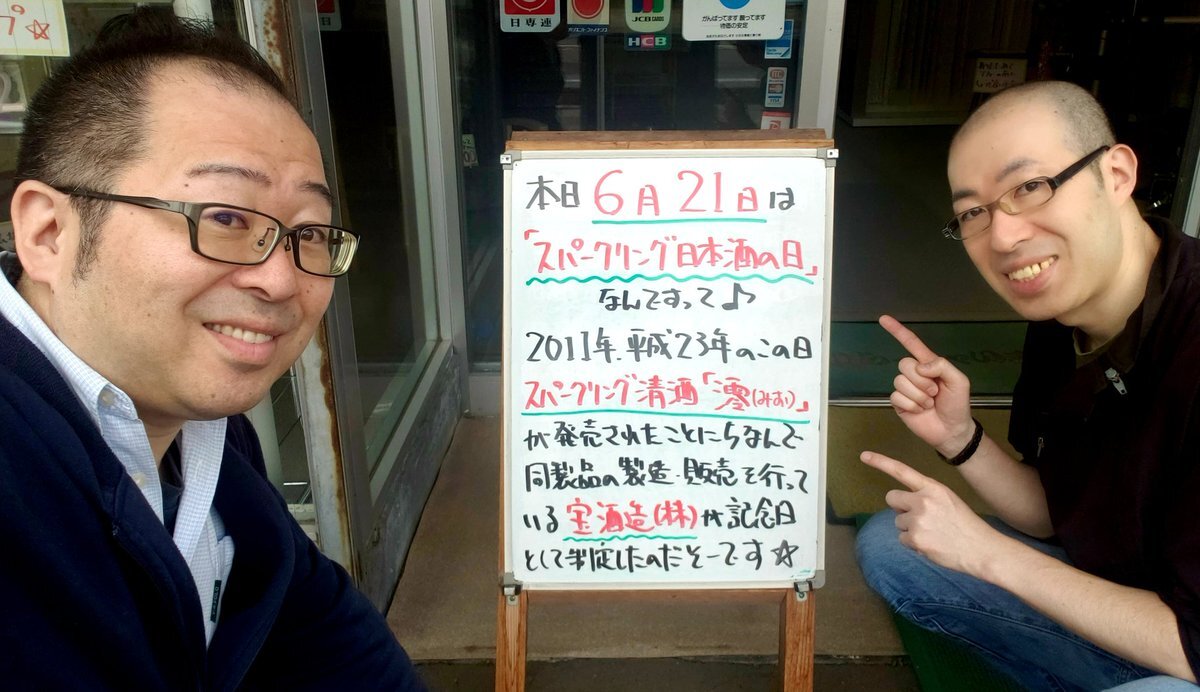 プ☆
日専連
JCB
CARDS
がんばってます 願ってます
物価の安定
HCB
VISA
本日 6月21日は
「スパークリング日本酒の日」
なんですって♪
2011年、平成23年のこの日
スパークリング清酒「澪(みお)」
が発売されたことにちなんで
同製品の製造・販売を行って
いる 宝酒造(株)が記念日
として制定したのだそーです☆